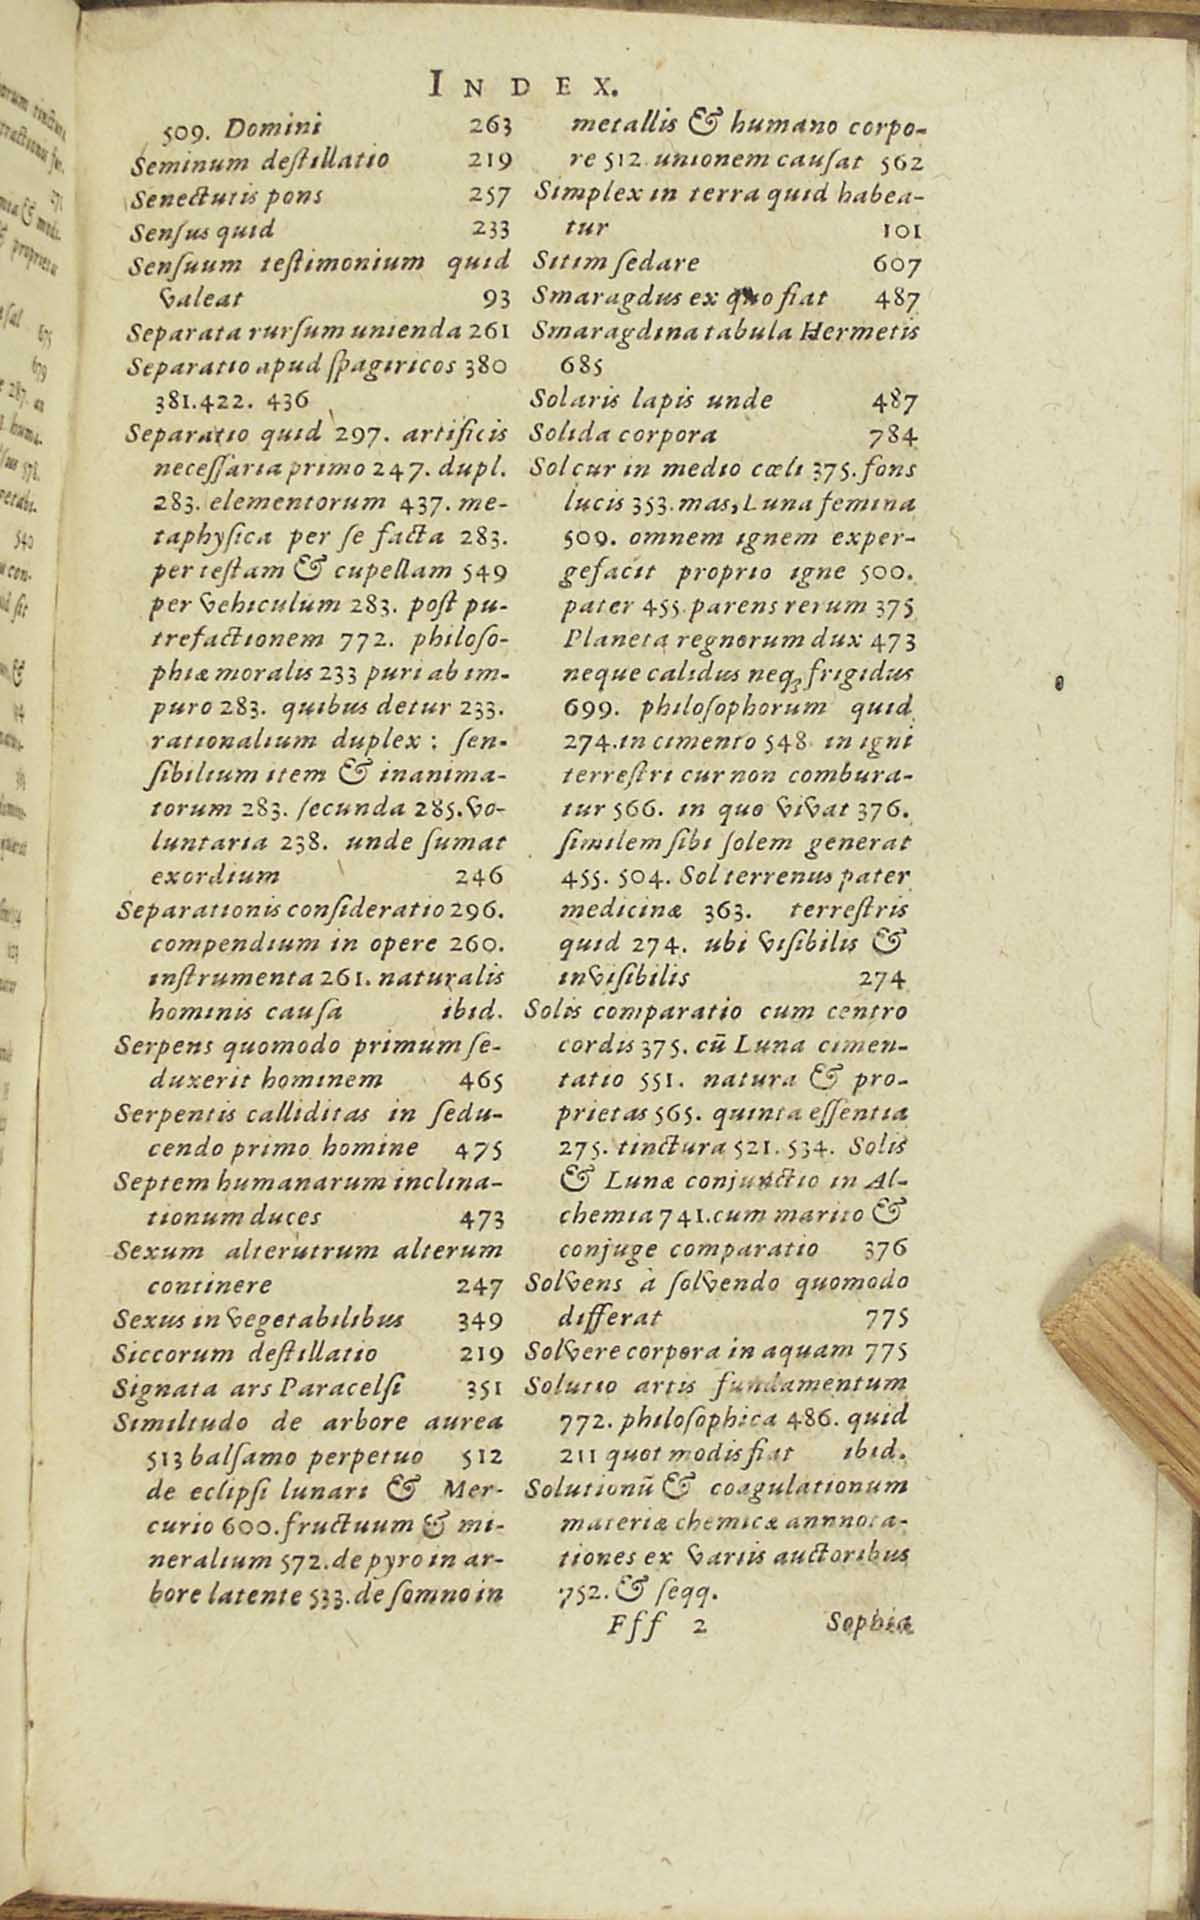 INDEX.
509. Domini 263
Seminum deſtillatio 219
Senectutis pons 257
Senſus quid 233
Senſuum teſtimonium quid
valeat 93
Separata rurſum unienda 261
Separatio apud ſpagiricos 380
381. 422. 436
Separatio quid 297. artificis
neceſſaria primo 247. dupl.
283. elementorum 437. me-
taphyſica per ſe facta 283.
per teſtam & cupellam 549
per vehiculum 283. poſt pu-
trefactionem 772. philoſo-
phiæ moralis 233 puri ab im-
puro 283. quibus detur 233.
rationalium duplex: ſen-
ſibilium item & inanima-
torum 283. ſecunda 285. vo-
luntaria 238. unde ſumat
exordium 246
Separationis conſideratio 296.
compendium in opere 260.
inſtrumenta 261. naturalis
hominis cauſa ibid.
Serpens quomodo primum ſe-
duxerit hominem 465
Serpentis calliditas in ſedu-
cendo primo homine 475
Septem humanarum inclina-
tionum duces 473
Sexum alterutrum alterum
continere 247
Sexus in vegetabilibus 349
Siccorum deſtillatio 219
Signata ars Paracelſi 351
Similtudo de arbore aurea
513 balſamo perpetuo 512
de eclipſi lunari & Mer-
curio 600. fructuum & mi-
neralium 572. de pyro in ar-
bore latente 533. de ſomno in
metallis & humano corpo-
re 512. unionem cauſat 562
Simplex in terra quid habea-
tur 101
Sitim ſedare 607
Smaragdus ex quo fiat 487
Smaragdina tabula Hermetis
685
Solaris lapis unde 487
Solida corpora 784
Sol cur in medio cœli 375. fons
lucis 353. mas, Luna femina
509. omnem ignem exper-
gefacit proprio igne 500.
pater 455. parens rerum 375
Planeta regnorum dux 473
neque calidus neq; frigidus
699. philoſophorum quid
274. in cimento 548 in igni
terreſtri cur non combura-
tur 566. in quo vivat 376.
ſimilem ſibi ſolem generat
455. 504. Sol terrenus pater
medicinæ 363. terreſtris
quid 274. ubi viſibilis &
inviſibilis 274
Solis comparatio cum centro
cordis 375. cū Luna cimen-
tatio 551. natura & pro-
prietas 565. quinta eſſentia
275. tinctura 521. 534. Solis
& Lunæ conjunctio in Al-
chemia 741. cum marito &
conjuge comparatio 376
Solvens à ſolvendo quomodo
differat 775
Solvere corpora in aquam 775
Solutio artis fundamentum
772. philoſophica 486. quid
211 quot modis fiat ibid.
Solutionū & coagulationum
materiæ chemicæ annnota-
tiones ex variis auctoribus
752. & ſeqq.
Fff 2 Sophia